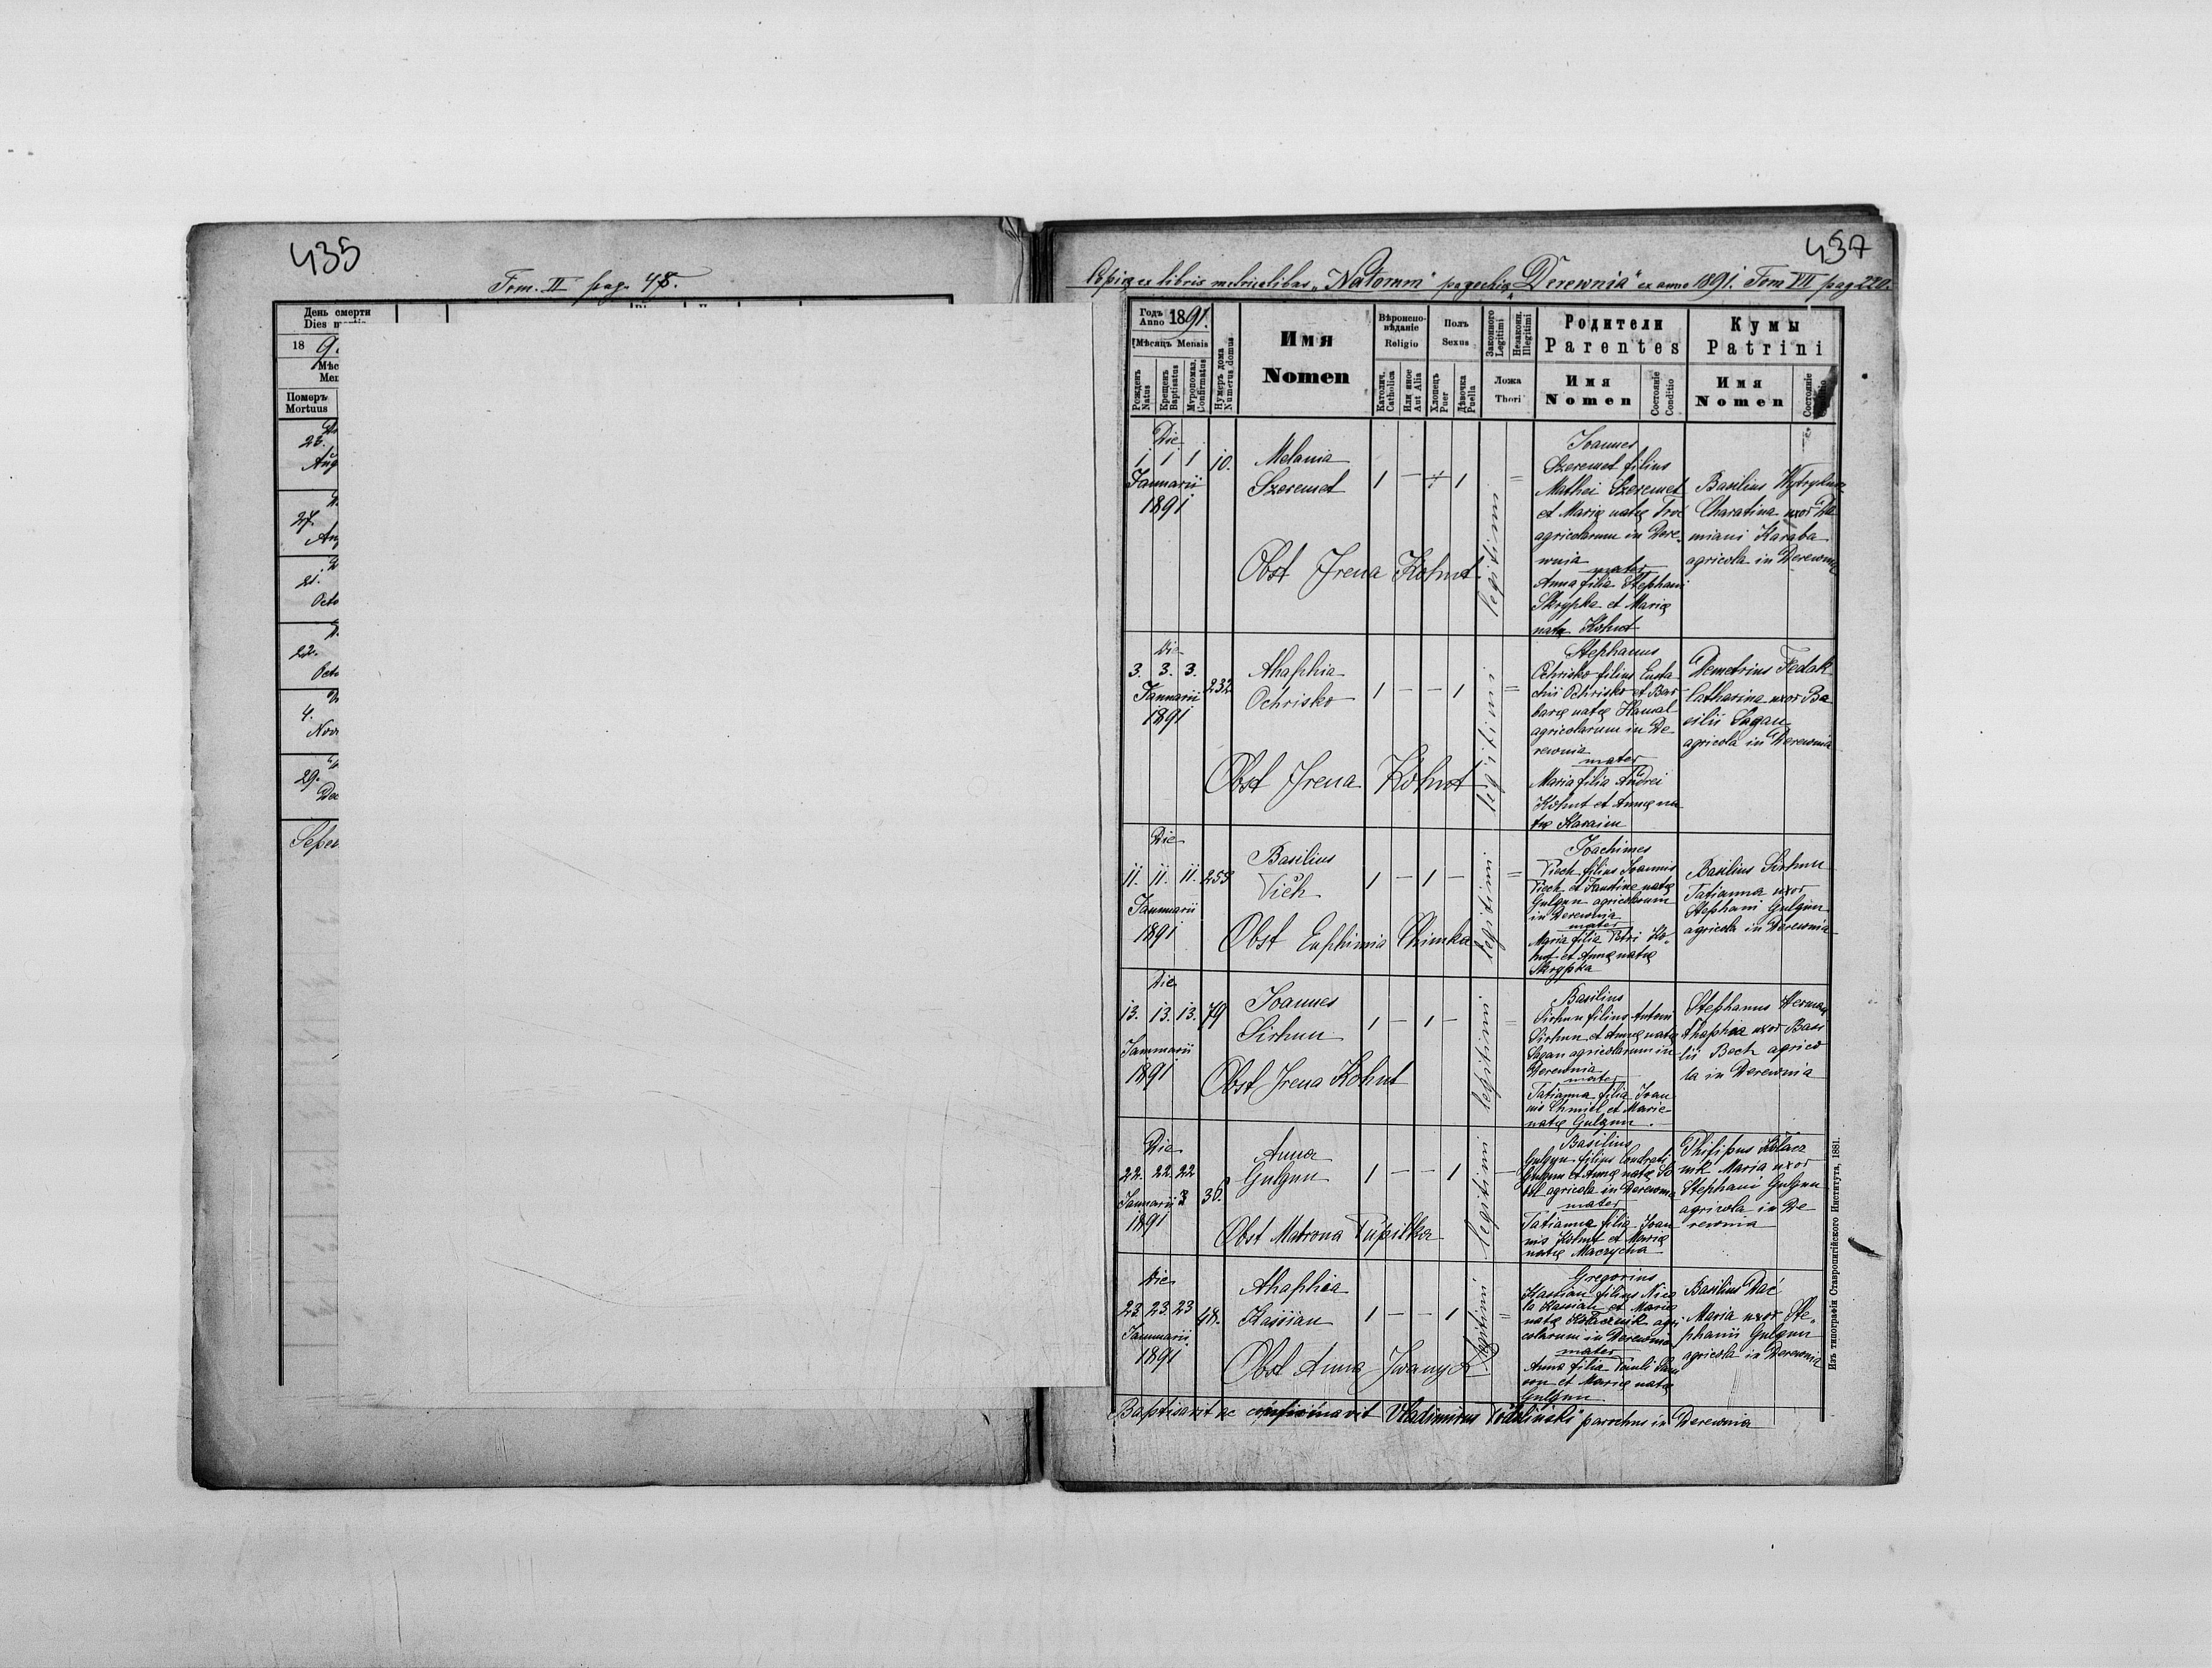 435
Tom. II pag. 48.
День смерти
Dies
18 9
Мѣс
Men
Померъ
Mortuus
26.
Aug
27.
Aug
21.
Octo
22.
Octo
4.
Nov
29.
Dec
437
Copia ex libris metricalibus "Natorum" parochiæ "Derewnia" ex anno 1891. Tom VII pag 220.
Годъ
Anno 1891.
Мѣсяцъ Mensis
Рожденъ
Natus
Крещенъ
Baptisatus
Мѵропомаз.
Confirmatus
Нумеръ дома
Numerus domus
Имя
Nomen
Вѣроиспо-
вѣданіе
Religio
Католич.
Catholica
Или иное
Aut Alia
Полъ
Sexus
Хлопецъ
Puer
Дѣвочка
Puella
Законного
Legitimi
Незаконн.
Illegitimi
Ложа
Thori
Родители
Parentes
Имя
Nomen
Состояніе
Conditio
Кумы
Patrini
Имя
Nomen
Состояніе
Die
1 1 1
Januarii
1891
10.
Melania
Szeremet
1 — + 1
legitimi
=
Joannes
Szeremet filius
Mathei Szeremet
et Mariæ natæ Troć
agricolarum in Dere-
wnia
mater
Anna filia Stephani
Skrypka et Mariæ
nata Kohut
Basilius
Charatina uxor Da
miani Karaba
agricola in Derewnia
Obst Irena Kohut
Die
3. 3. 3.
Januarii
1891
232
Ahaphia
Ochrisko
1 — — 1
legitimi
=
Stephanus
Ochrisko filius Eusta-
chii Ochrisko et Bar-
baræ natæ Hamal
agricolarum in De-
rewnia
mater
Maria filia Andrei
Kohut et Annæ na
tæ Karaim
Demetrius Fedak
Catharina uxor Ba
silii Sagan
agricola in Derewnia
Obst Irena Kohut
Die
11. 11. 11.
Januarii
1891
255
Basilius
1 — 1 —
legitimi
=
Joachimes
Piech filius Joannis
Piech et Faustinæ natæ
Gulgun agricolarum
in Derewnia
mater
Maria filia Petri Ko-
hut et Annæ natæ
Skrypka
Basilius Sirhun
Tatianna uxor
Stephani Gulgun
agricola in Derewnia
Obst Euphimia
Die
13. 13. 13.
Januarii
1891
79
Joannes
Sirhun
1 — 1 —
legitimi
=
Basilius
Sirhun filius Antoni
Sirhun et Annæ natæ
Sagan agricolarum in
Derewnia
mater
Tatianna filia Joan
nis Chmil et Mariæ
natæ Gulgun.
Stephanus Herman
Ahaphia uxor Basi
lii Bech agrico
la in Derewnia
Obst Irena Kohut
Die
22. 22. 22
Januarii
1891
36.
Anna
Gulgun
1 — — 1
legitimi
—
Basilius
Gulgun filius Condrati
Gulgun et Annæ natæ
agricola in Derewnia
mater
Tatianna filia Joan
nis Kohut et Mariæ
natæ Macrycha
Philipus Kolacz
nik Maria uxor
Stephani Gulgun
agricola in De
rewnia
Obst Matrona Pupilka
Die
23. 23. 23
Januarii
1891
48.
Ahaphia
Kassian
1 — — 1
legitimi
=
Gregorius
Kassian filius Nico
la Kassian et Mariæ
natæ Kolacznik agri-
colarum in Derewnia
mater
Anna filia Pauli
et Mariæ natæ
Gulgun
Basilius Dać
Maria uxor Ste-
phanii Gulgun
agricola in Derewnia
Obst Anna
Baptisavit ac confirmavit Vladimirus parochus in Derewnia
Изъ типографіи Ставропигійского Института, 1881.